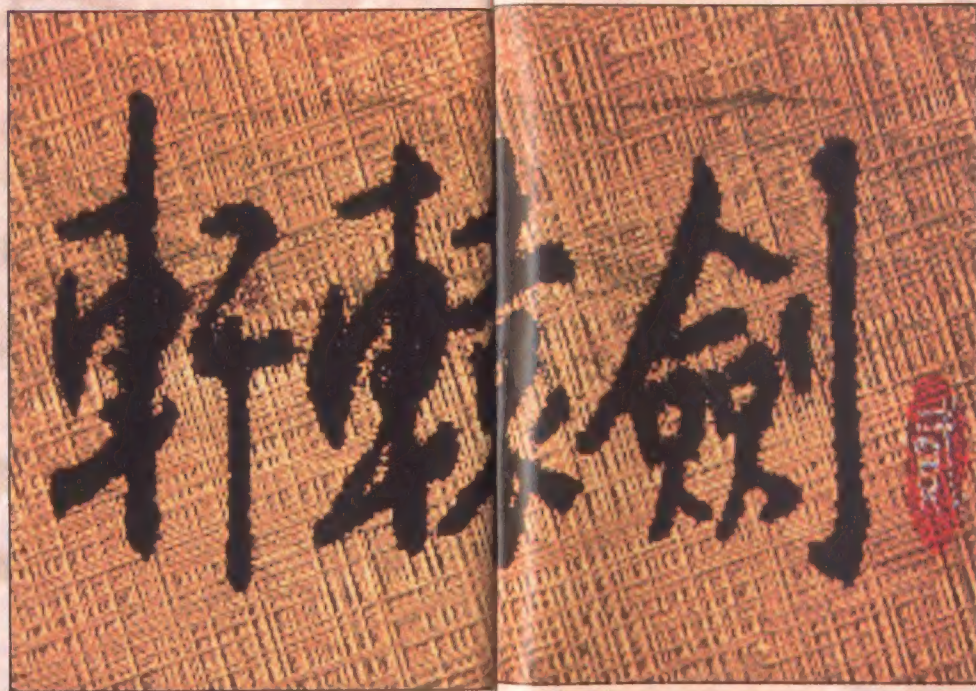 軒轅劍